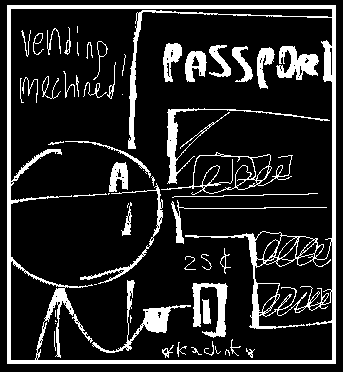 vending
mechined!
PASSPORT
25¢
*kachink*